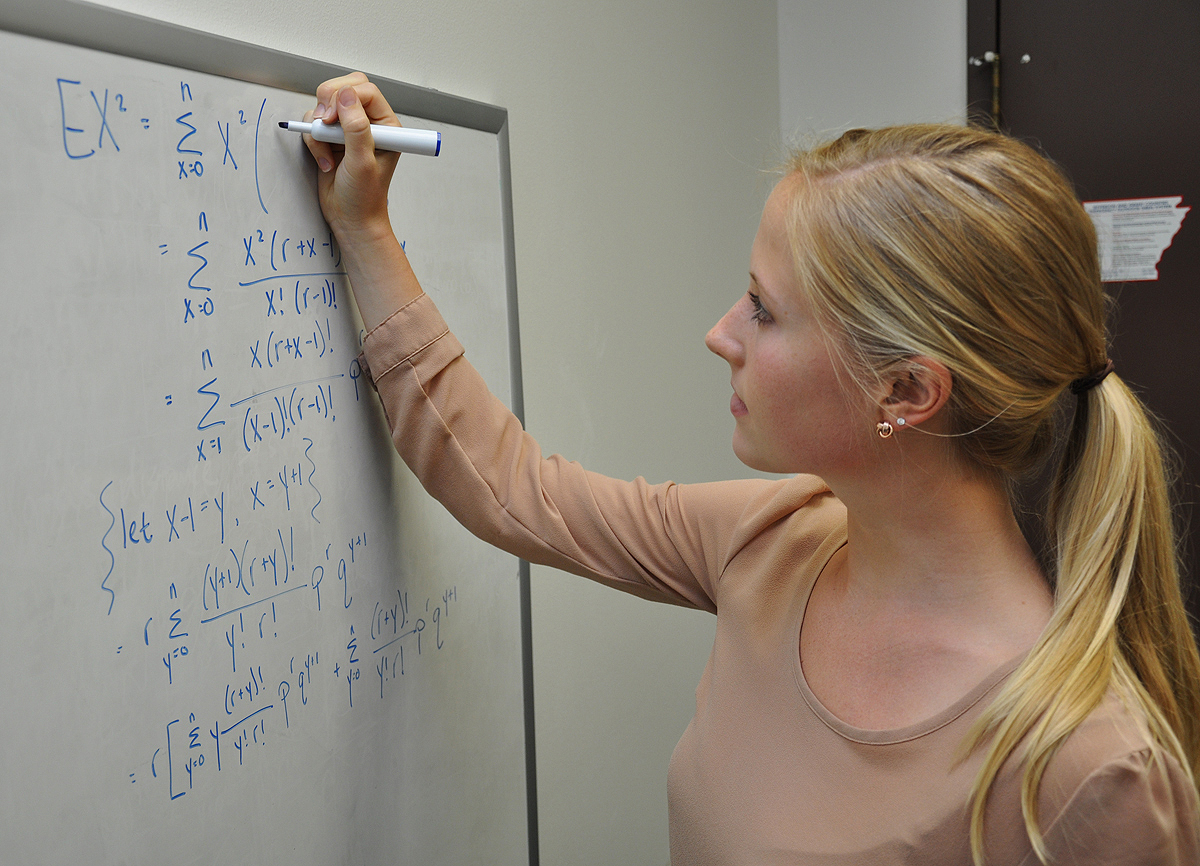 EX² = Σ_{x=0}^{n} x² (
= Σ_{x=0}^{n} x²(r+x-1) / x! (r-1)! x
= Σ_{x=1}^{n} x(r+x-1)! / (x-1)!(r-1)! p
{let x-1=y, x=y+1}
= r Σ_{y=0}^{n} (y+1)(r+y)! / y! r! p^r q^{y+1}
= r [ Σ_{y=0}^{n} y (r+y)! / y! r! p^r q^{y+1} + Σ_{y=0}^{n} (r+y)! / y! r! p^r q^{y+1}